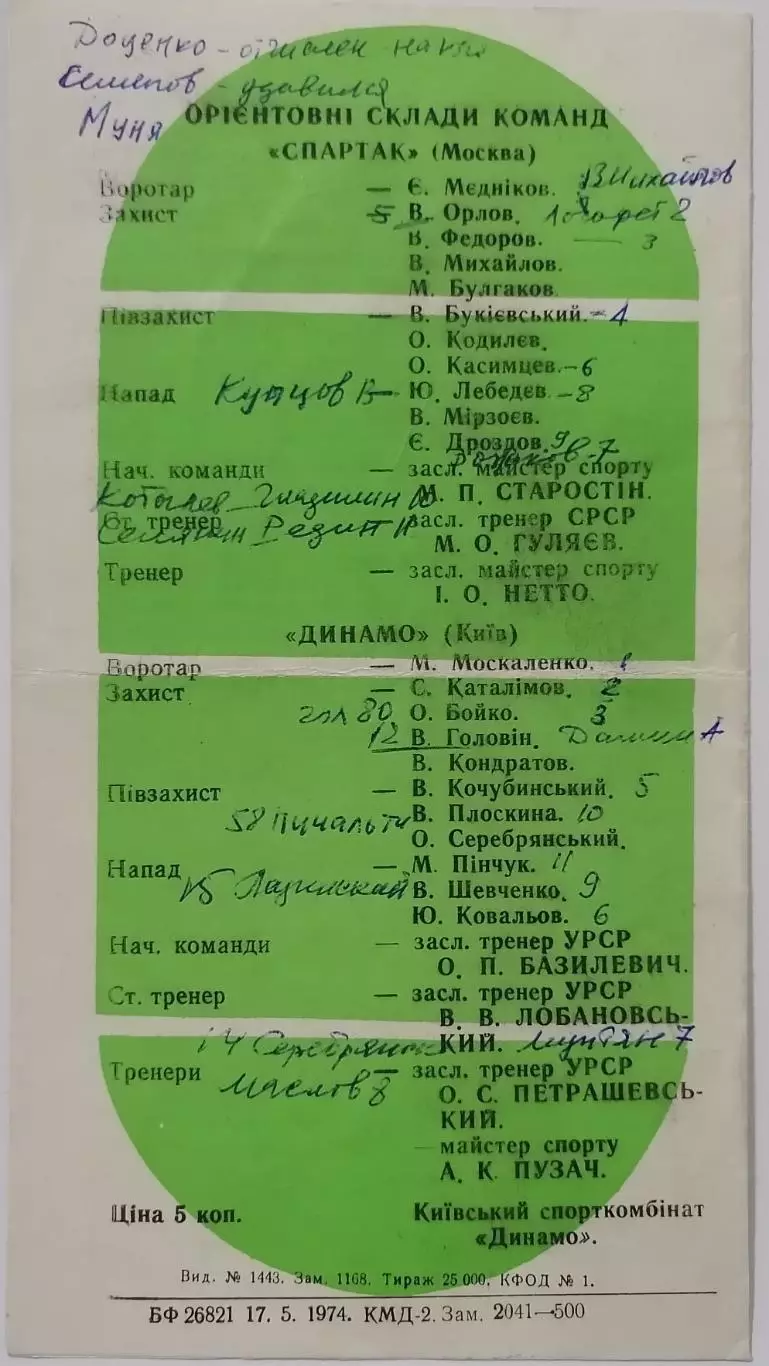 Доценко - отчислен
Семенов - удавился
Муня
ОРІЄНТОВНІ СКЛАДИ КОМАНД
«СПАРТАК» (Москва)
Воротар — Є. Мєдніков. В Михайлов
Захист 5 В. Орлов. 2
В. Федоров. — 3
В. Михайлов.
М. Булгаков.
Півзахист — В. Букієвський. - 4
О. Кодилєв.
О. Касимцев. - 6
Напад Купцов В — Ю. Лебедєв. - 8
В. Мірзоєв.
Є. Дроздов. 9
7
Нач. команди — засл. майстер спорту
Гладилин 10 М. П. СТАРОСТІН.
Ст. тренер Редин 11 засл. тренер СРСР
М. О. ГУЛЯЄВ.
Тренер — засл. майстер спорту
І. О. НЕТТО.
«ДИНАМО» (Київ)
Воротар — М. Москаленко. 1
Захист — С. Каталімов. 2
80 О. Бойко. 3
12 В. Головін. 4
В. Кондратов.
Півзахист — В. Кочубинський. 5
58 В. Плоскина. 10
О. Серебрянський.
Напад — М. Пінчук. 11
В. Шевченко. 9
Ю. Ковальов. 6
Нач. команди — засл. тренер УРСР
О. П. БАЗИЛЕВИЧ.
Ст. тренер — засл. тренер УРСР
В. В. ЛОБАНОВСЬ-
КИЙ. Мунтян 7
Тренери — засл. тренер УРСР
Маслов 8 О. С. ПЕТРАШЕВСЬ-
КИЙ.
— майстер спорту
А. К. ПУЗАЧ.
Ціна 5 коп. Київський спорткомбінат
«Динамо».
Вид. № 1443. Зам. 1168. Тираж 25 000. КФОД № 1.
БФ 26821 17. 5. 1974. КМД-2. Зам. 2041—500